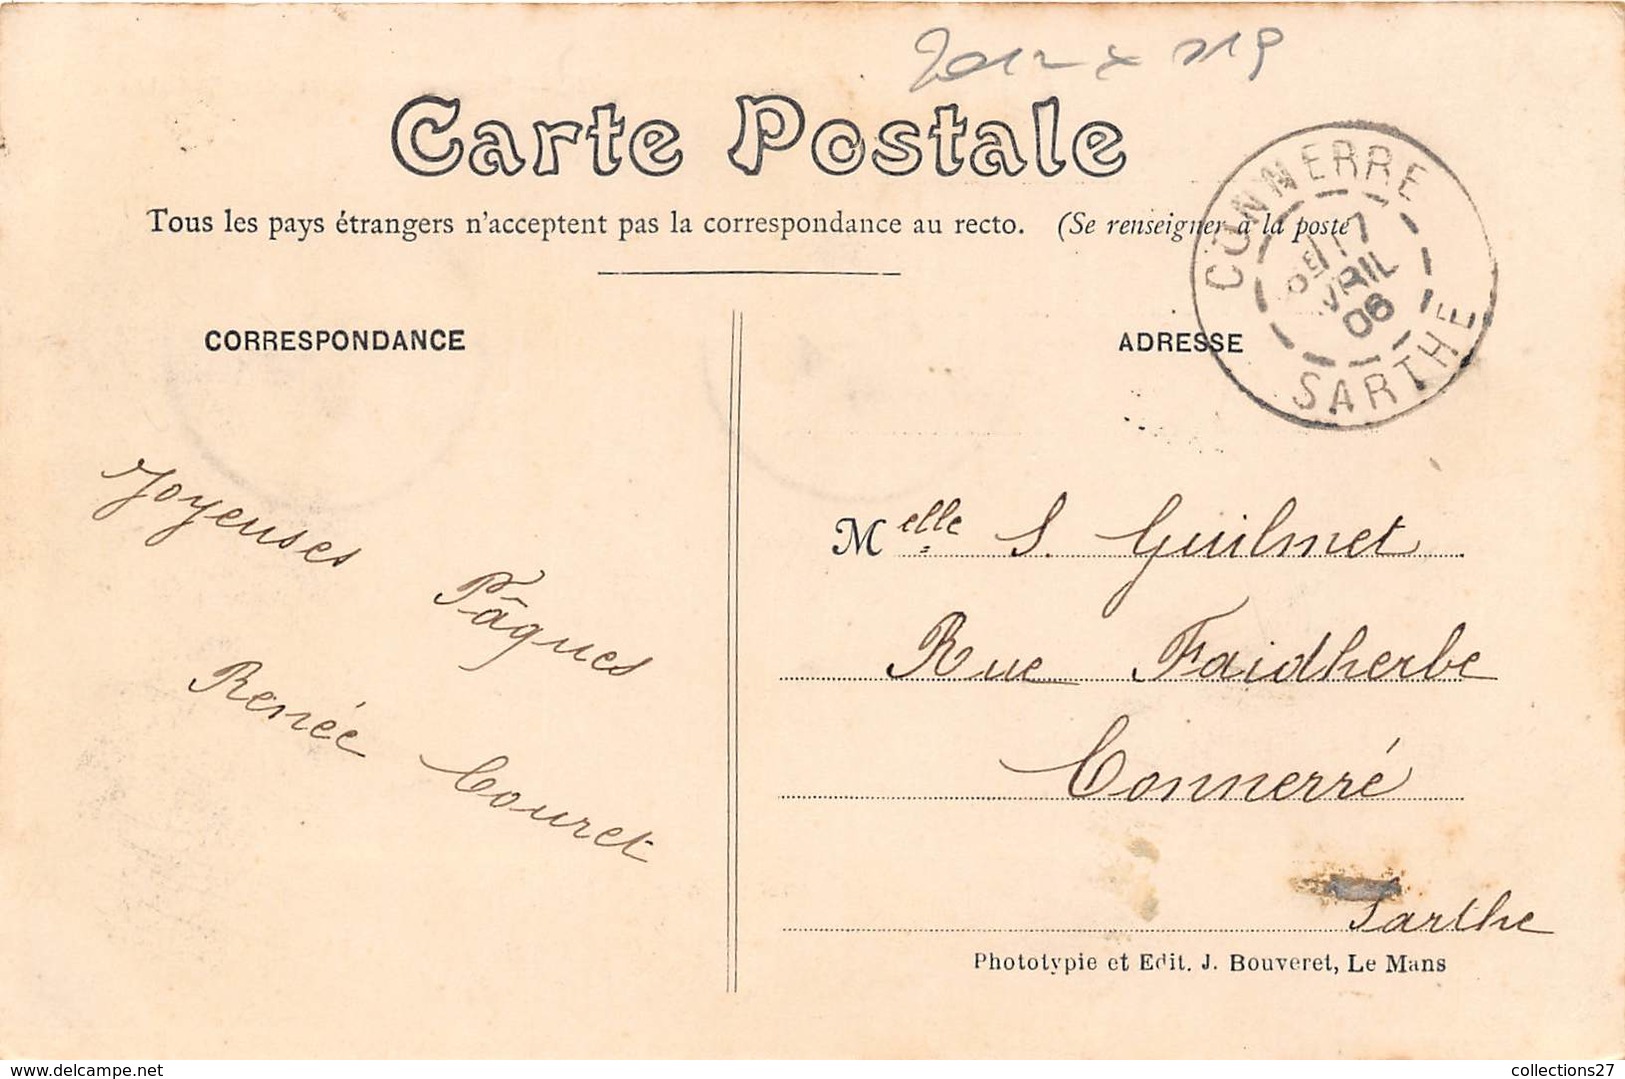 Carte Postale
Tous les pays étrangers n'acceptent pas la correspondance au recto. (Se renseigner à la poste
CONNERRE
17
AVRIL
06
SARTHE
CORRESPONDANCE
ADRESSE
Joyeuses Pâques
Renée Couret
Melle S. Guilmet
Rue Faidherbe
Connerré
Sarthe
Phototypie et Edit. J. Bouveret, Le Mans
www.delcampe.net
collections27